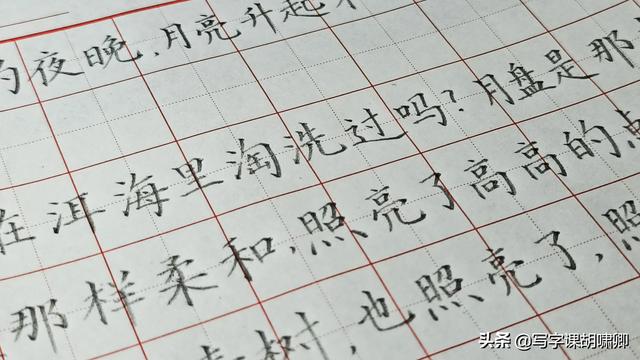 的夜晚,月亮升起
在洱海里淘洗过吗?月盘是那
那样柔和,照亮了高高的点
树,也照亮了,照
头条 @写字课胡啸卿